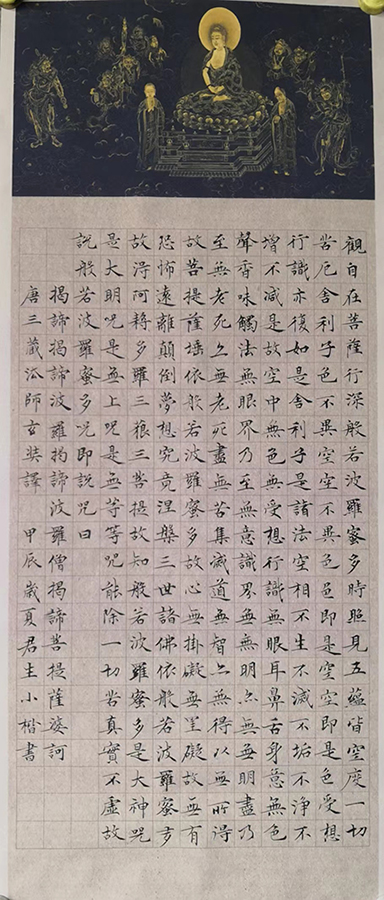 觀自在菩薩行深般若波羅蜜多時照見五蘊皆空度一切
苦厄舍利子色不異空空不異色色即是空空即是色受想
行識亦復如是舍利子是諸法空相不生不滅不垢不淨不
增不減是故空中無色無受想行識無眼耳鼻舌身意無色
聲香味觸法無眼界乃至無意識界無無明亦無無明盡乃
至無老死亦無老死盡無苦集滅道無智亦無得以無所得
故菩提薩埵依般若波羅蜜多故心無掛礙無罣礙故無有
恐怖遠離顛倒夢想究竟涅槃三世諸佛依般若波羅蜜多
故得阿耨多羅三藐三菩提故知般若波羅蜜多是大神咒
是大明咒是無上咒是無等等咒能除一切苦真實不虛故
說般若波羅蜜多咒即說咒曰
揭諦揭諦波羅揭諦波羅僧揭諦菩提薩婆訶
唐三藏法師玄奘譯 甲辰歲夏君生小楷書